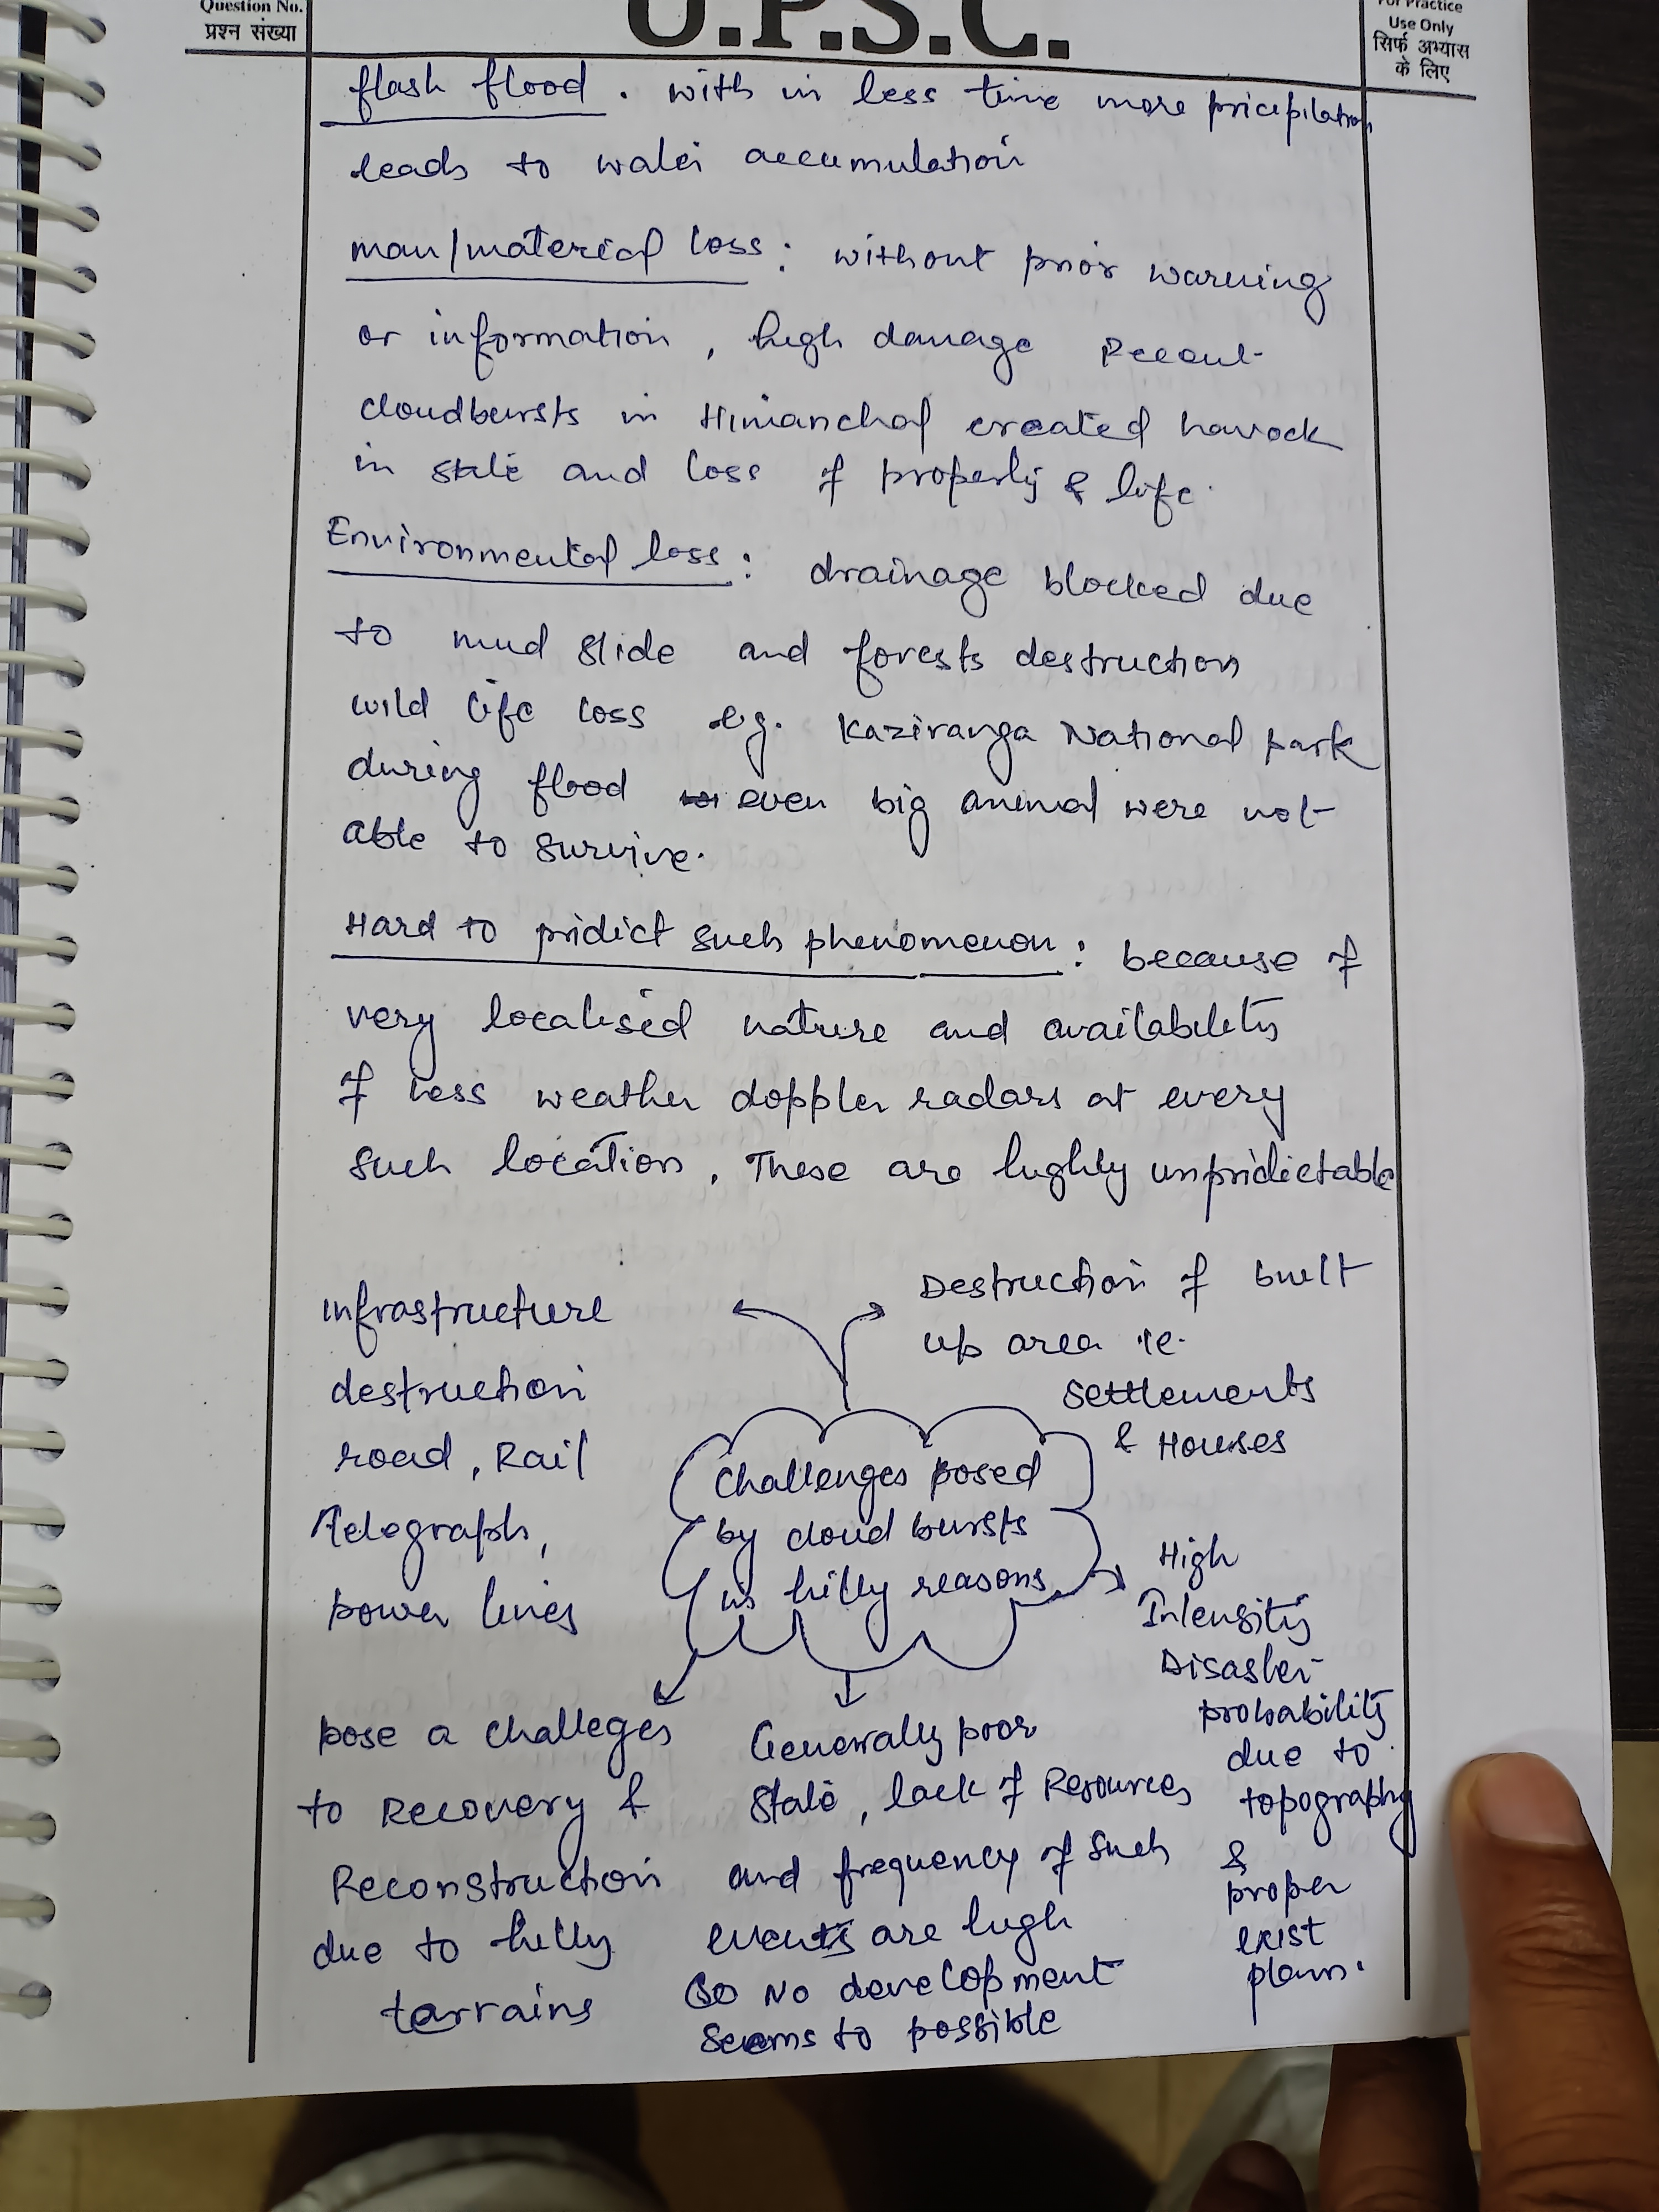 Question No.
प्रश्न संख्या
U.P.S.C.
For Practice
Use Only
सिर्फ अभ्यास
के लिए
flash flood. with in less time more pricipilation
leads to water accumulation
man/material loss: without prior warning
or information, high damage Recent
cloudbursts in Himanchal created havock
in state and loss of property & life.
Environmental loss: drainage blocked due
to mud slide and forests destruction
wild life loss eg. Kaziranga National park
during flood even big animal were not
able to survive.
Hard to pridict such phenomenon: because of
very localised nature and availability
of less weather doppler radars at every
such location. These are highly unpridictable
Infrastructure
destruction
road, Rail
Telegraph,
power lines
Destruction of built
up area ie.
Settlements
& Houses
Challenges posed
by cloud bursts
in hilly reasons
High
Intensity
Disaster
probability
due to
topography
&
proper
exist
plan.
pose a challeges
to Recovery &
Reconstruction
due to hilly
tarrains
Generally poor
State, lack of Resources
and frequency of such
events are high
So No development
seems to possible